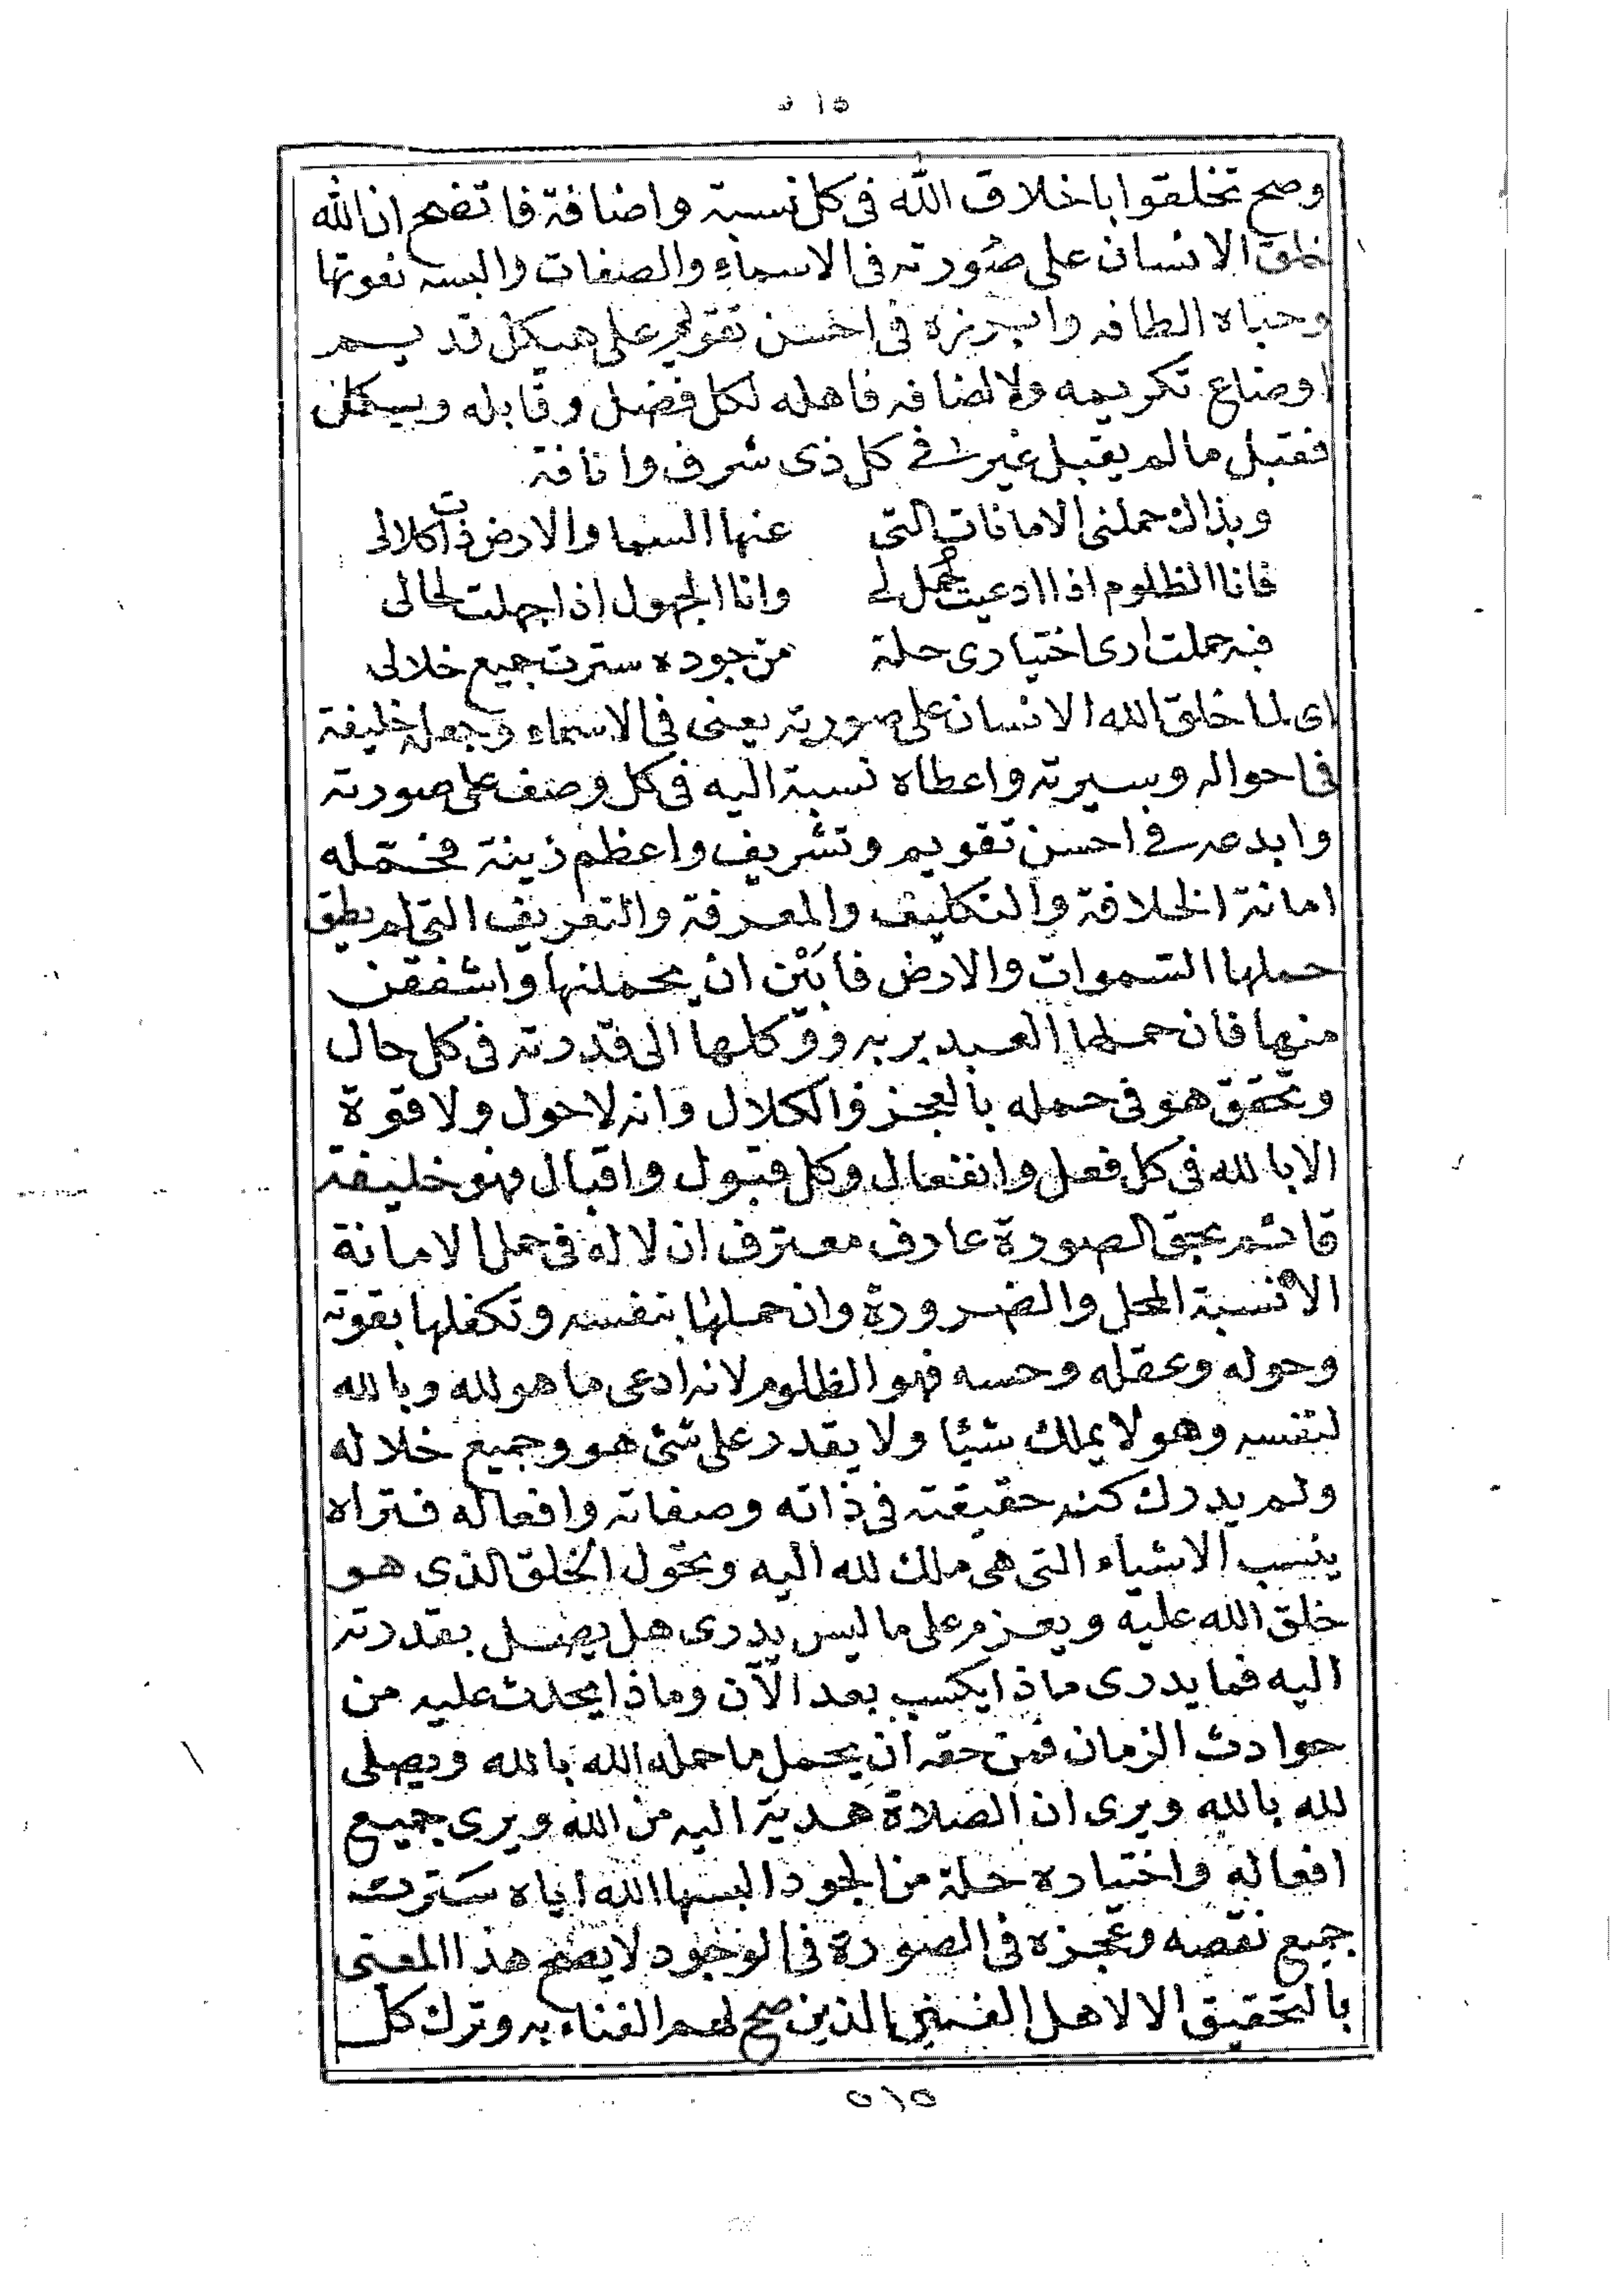 ٥١٥
وصح تخلقوا باخلاق الله فى كل نسبة واضافة فاتضح ان الله
خلق الانسان على صورته فى الاسماء والصفات والبسه نعوتها
وحباه الطافه وابرزه فى احسن تقويم على هيكل قد يسم
اوضاع تكريمه ولا لضافه فاهله لكل فضل وقابله
فقبل ما لم يقبل غيره فى كل ذى شرف وانافة
وبذاك حملنى الامانات التى عنها السما والارض ذات كلال
فانا الظلوم اذا ادعيت تحمل لى وانا الجهول اذا جهلت لحالى
فبه حملت ارى اختيارى حلة من جوده سترت جميع خلالى
اى لما خلق الله الانسان على صورته يعنى فى الاسماء وجعله خليفة
فى احواله وسيرته واعطاه نسبة اليه فى كل وصف على صورته
وابدعه فى احسن تقويم وتشريف واعظم زينة فحمّله
امانة الخلافة والتكليف والمعرفة والتعريف التى لم يطق
حملها السموات والارض فابَيْن ان يحملنها واشفقن
منها فان حملها العبد بربه ووكلها الى قدرته فى كل حال
وتحقق هو فى حمله بالعجز والكلال وانه لا حول ولا قوة
الا بالله فى كل فعل وانفعال وكل قبول واقبال فهو خليفة
قائم بحق الصورة عارف معترف ان لا له فى حمل الامانة
الا نسبة المحل والضرورة وان حملها بنفسه وتكفلها بقوته
وحوله وعقله وحسه فهو الظلوم لانه ادعى ما هو لله وبالله
لنفسه وهو لا يملك شيئا ولا يقدر على شئ هو وجميع خلاله
ولم يدرك كنه حقيقته فى ذاته وصفاته وافعاله فتراه
ينسب الاشياء التى هى ملك لله اليه ويحول الخلق الذى هو
خلق الله عليه ويعزم على ما ليس يدرى هل يصل بقدرته
اليه فما يدرى ماذا يكسب بعد الآن وماذا يحدث عليه من
حوادث الزمان فمن حقه ان يحمل ما حمله الله بالله ويصلى
لله بالله ويرى ان الصلاة هدية اليه من الله ويرى جميع
افعاله واختياره حلة من الجود البسها الله اياه سترت
جميع نقصه وعجزه فى الصورة فى الوجود لا يصح هذا المعنى
بالتحقيق الا لاهل الذين صح لهم الفناء به وترك كل
٥١٥